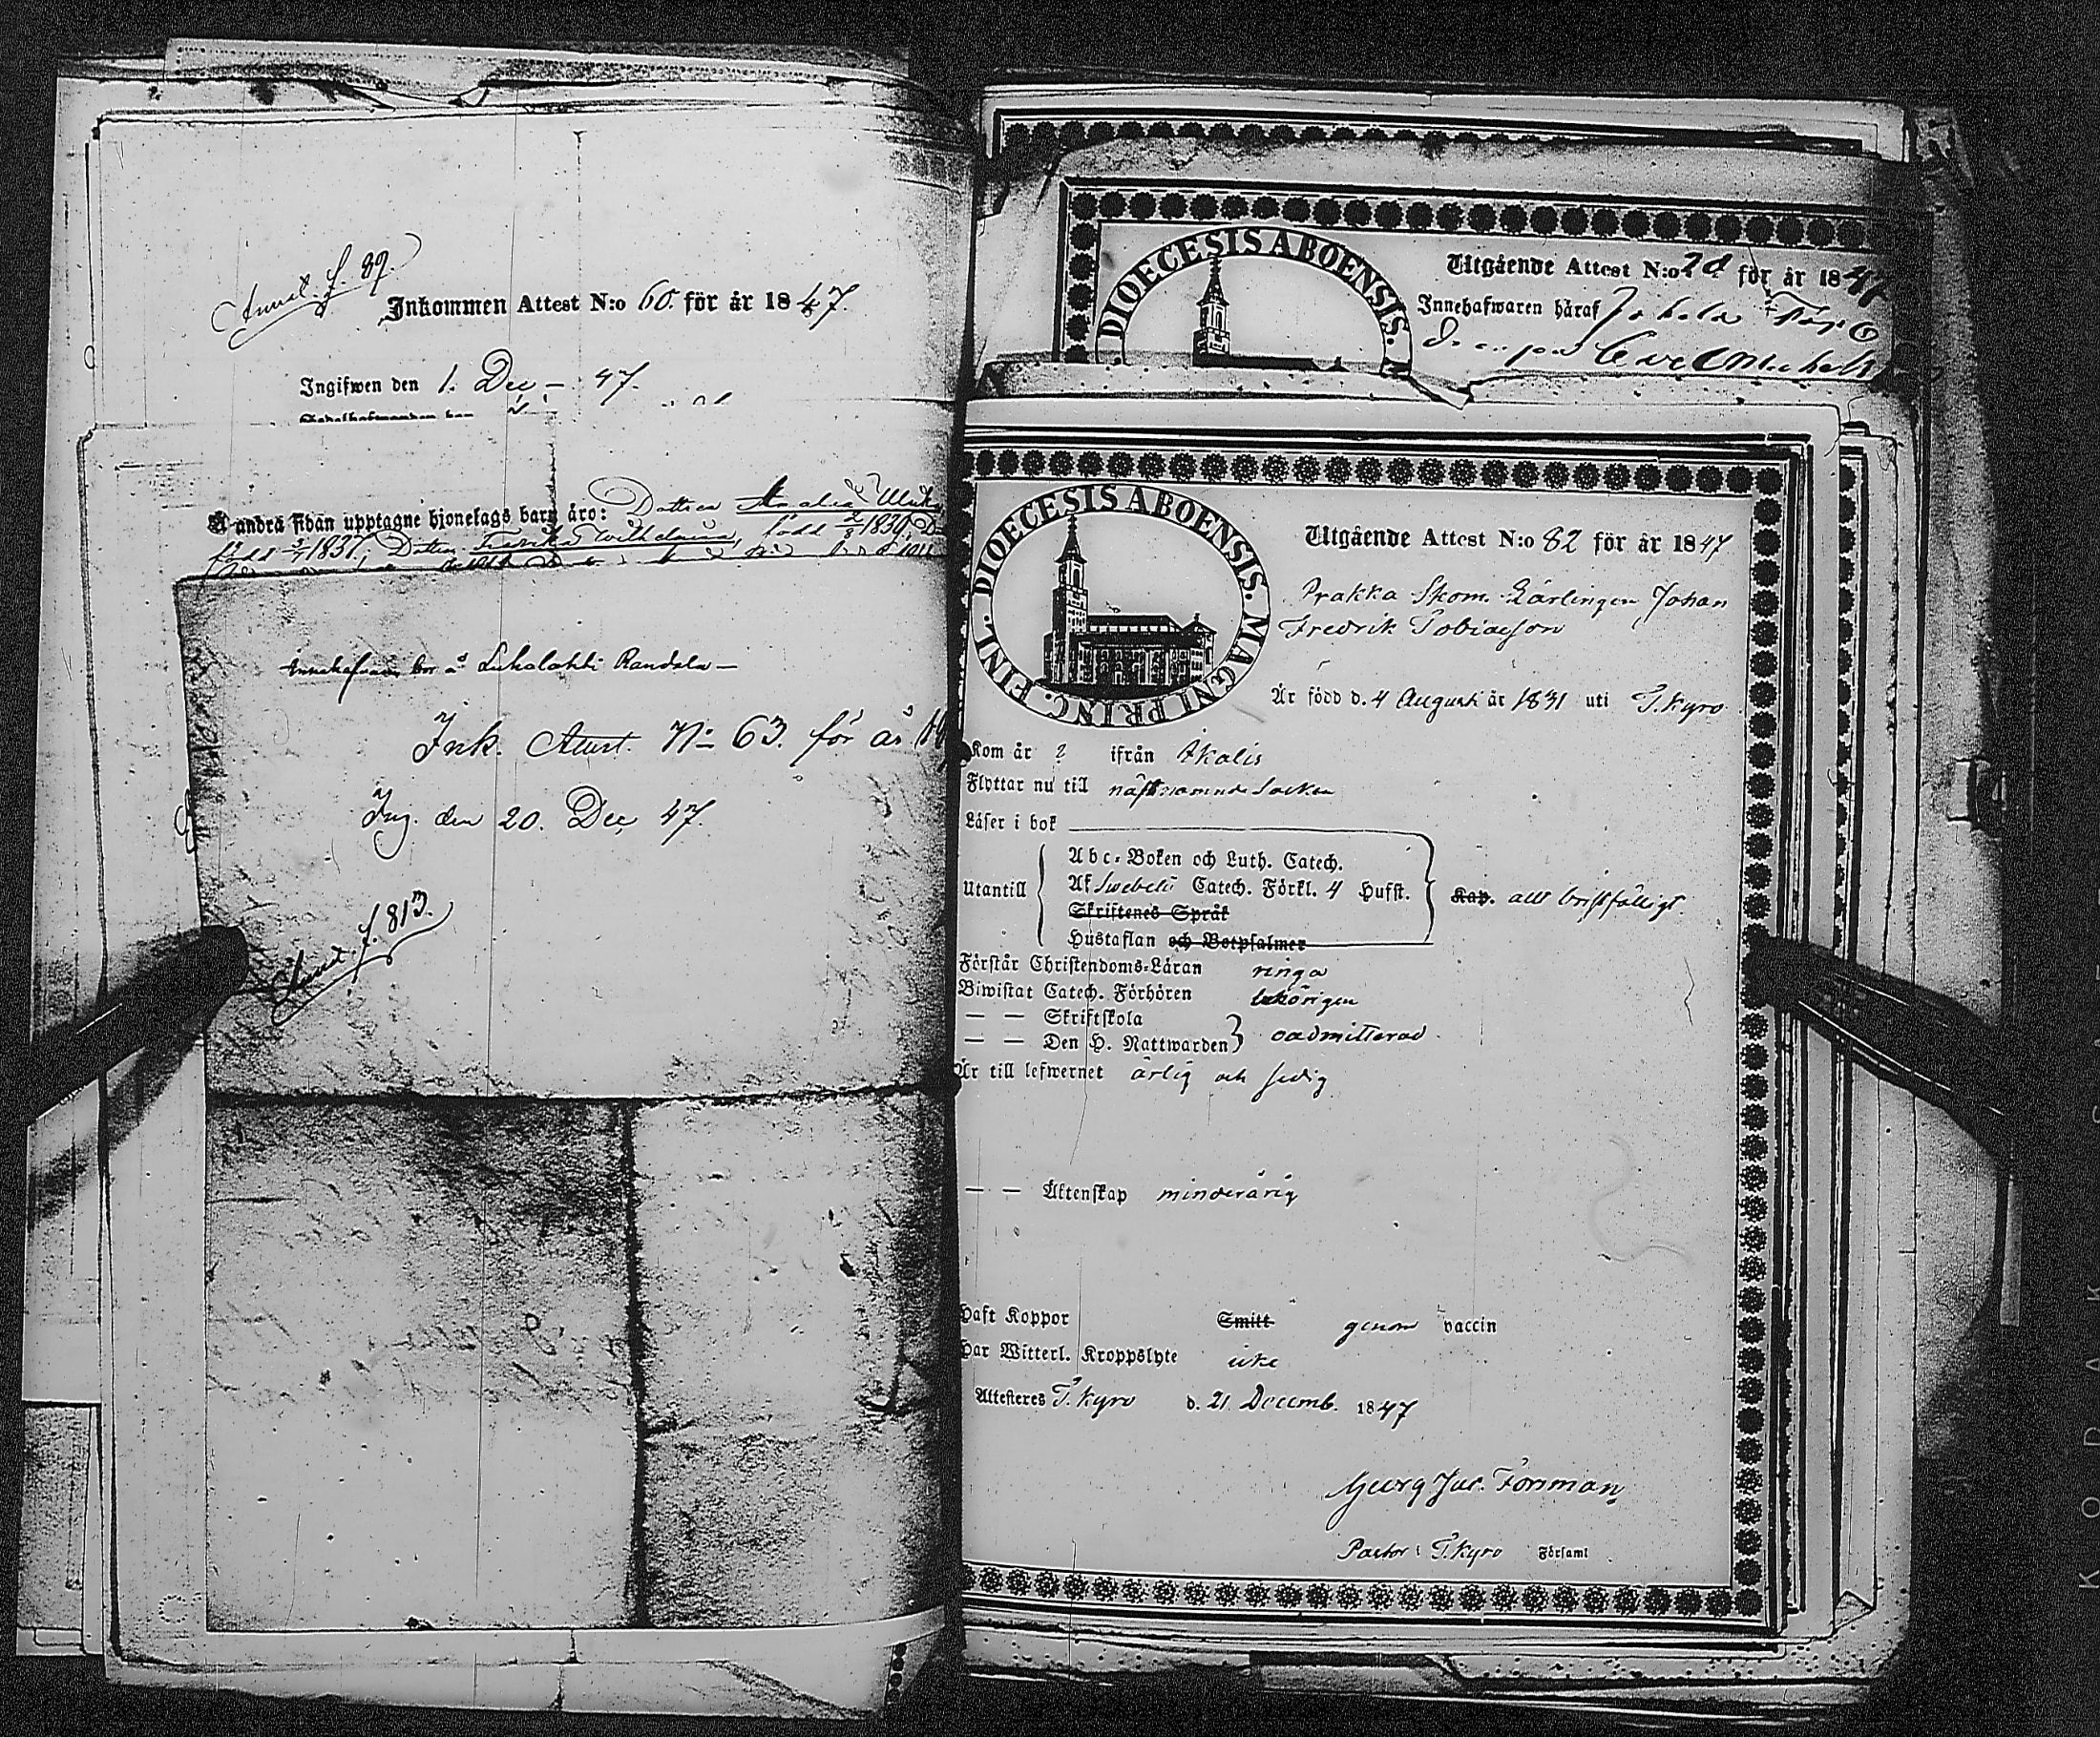 Annot. f. 89.
Inkommen Attest N:o 60. för år 1847.
Ingifwen den 1. Dec. – 47.
Å andra sidan upptagne hjonelags barn äro: Dottren
född 1837, Dottren Fredrika Wilhelmina, född 1839,
Innehafwaren bor å Lukolahti Randala –
Ink. Attest. No 63. för år
Ing. den 20. Dec. 47.
Annot. f. 813.
DIOECESIS ABOENSIS.
Utgående Attest N:o 28 för år 1847
Innehafwaren häraf
DIOECESIS ABOENSIS. MAGNI PRINC. FINL.
Utgående Attest N:o 82 för år 1847
Prakka Skom. Lärlingen Johan
Fredrik Tobiasson
Är född d. 4 Augusti år 1831 uti T.kyro
Kom år ? ifrån Ikalis
Flyttar nu till nästnämnde Socken
Läser i bok
Utantill
Abc-Boken och Luth. Catech.
Af Swebelii Catech. Förkl. 4 Hufst.
Skriftenes Språk
Hustaflan och Botpsalmer
Kap. allt bristfälligt.
Förstår Christendoms-Läran ringa
Biwistat Catech. Förhören behörigen
— — Skriftskola
— — Den H. Nattwarden } oadmitterad
Är till lefwernet ärlig och sedig
— — Äktenskap minderårig
Haft Koppor Smitt genom vaccin
Har Witterl. Kroppslyte icke
Attesteres T.kyro d. 21 Decemb. 1847
Georg Jac. Forsman,
Pastor i T.kyro Församl